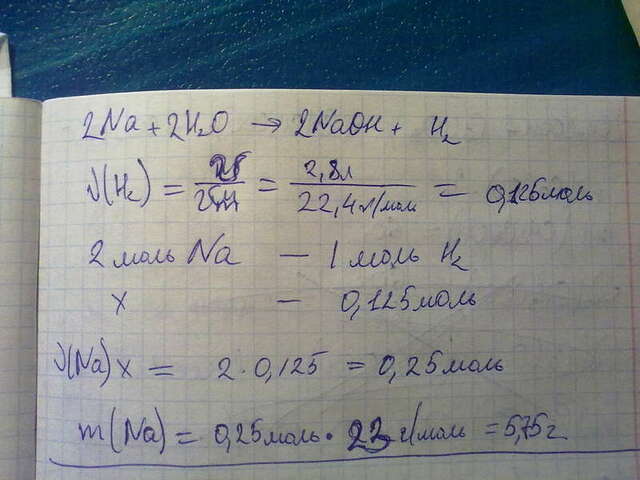 2Na + 2H₂O → 2NaOH + H₂
ν(H₂) = V/Vm = 2,8л/22,4л/моль = 0,125моль
2 моль Na — 1 моль H₂
x — 0,125моль
ν(Na) x = 2·0,125 = 0,25моль
m(Na) = 0,25моль · 23 г/моль = 5,75г